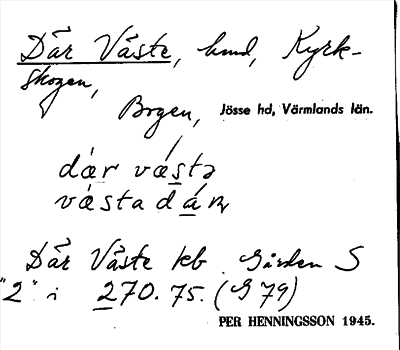 Där Väste, hmd, Kyrk-
skogen,
Bogen, Jösse hd, Värmlands län.
dær væstə
væsta dän
Där Väste kb. Gården S
"2" i 270.75. (G 79)
PER HENNINGSSON 1945.